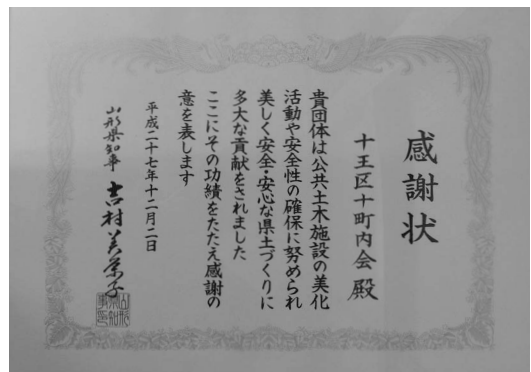 感謝状
十王区十町内会 殿
貴団体は公共土木施設の美化
活動や安全性の確保に努められ
美しく安全・安心な県土づくりに
多大な貢献をされました
ここにその功績をたたえ感謝の
意を表します
平成二十七年十二月二日
山形県知事 吉村美栄子